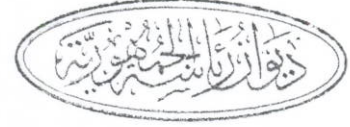 ديوان رئاسة الجمهورية